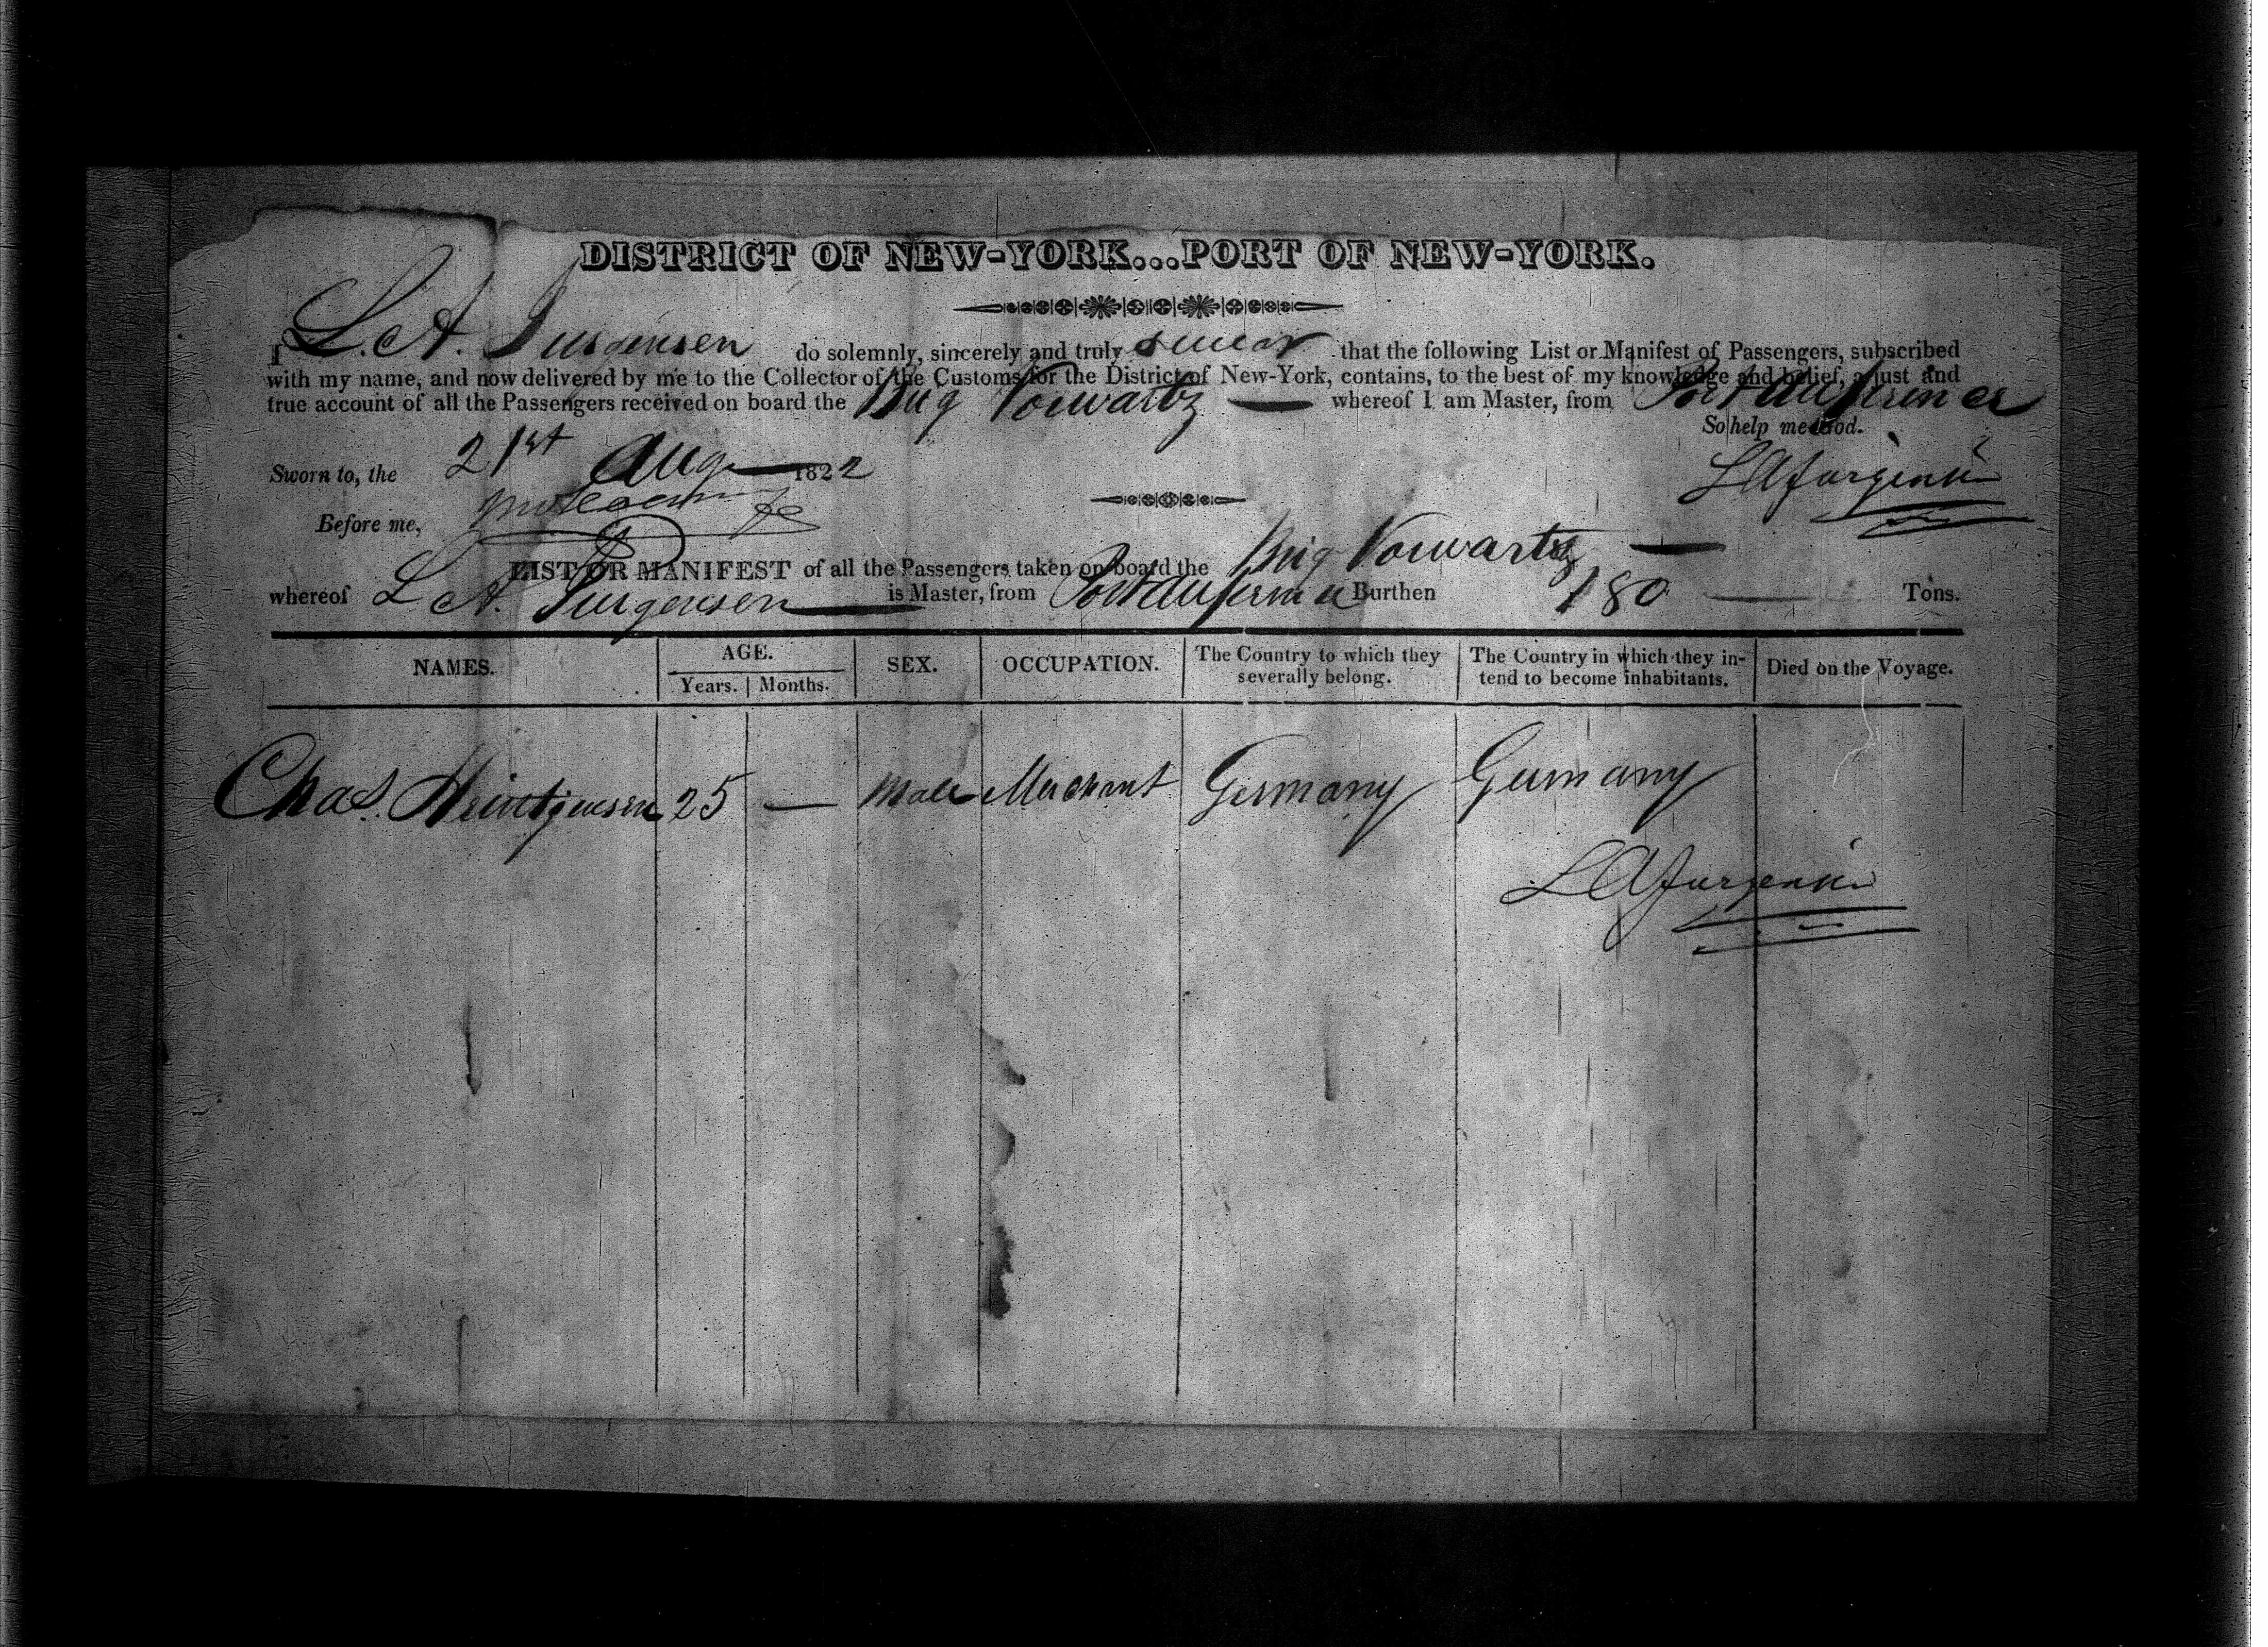 DISTRICT OF NEW-YORK...PORT OF NEW-YORK.
I L. A. Jurgensen do solemnly, sincerely and truly swear that the following List or Manifest of Passengers, subscribed
with my name, and now delivered by me to the Collector of the Customs for the District of New-York, contains, to the best of my knowledge and belief, a just and
true account of all the Passengers received on board the Brig Vorwartz whereof I am Master, from Port au Prince
So help me God.
Sworn to, the 21st Aug 1822
LA Jurgensen
Before me,
LIST OR MANIFEST of all the Passengers taken on board the Brig Vorwarts
whereof L A. Jurgensen is Master, from Port au Prince Burthen 180 Tons.
NAMES. AGE. Years. Months. SEX. OCCUPATION. The Country to which they severally belong. The Country in which they intend to become inhabitants. Died on the Voyage.
Chas. 25 — Male Merchant Germany Germany
LA Jurgensen